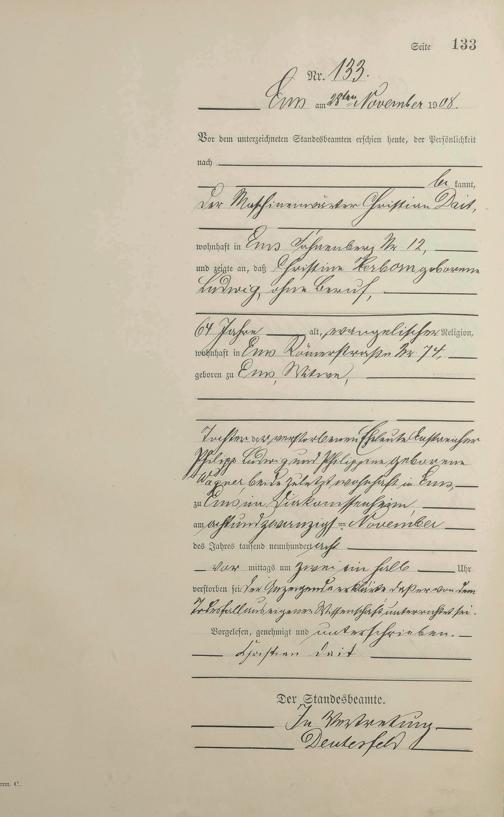 Seite 133
Nr. 133.
Ems am 28ten November 1908.
Vor dem unterzeichneten Standesbeamten erschien heute, der Persönlichkeit
nach
be kannt,
der Maschinenwärter Christian Dait,
wohnhaft in Ems Nr 12,
und zeigte an, daß Christine Herborn geborene
Ludwig, ohne Beruf,
64 Jahre alt, evangelischer Religion,
wohnhaft in Ems Römerstraße Nr 74,
geboren zu Ems, Witwe,
Tochter der verstorbenen Eheleute
Philipp Ludwig und Philippine geborene
Wagner, beide zuletzt wohnhaft in Ems,
zu Ems im Diakonissenheim
am achtundzwanzigsten November
des Jahres tausend neunhundert acht
vor mittags um zwei ein halb Uhr
verstorben sei. Der Anzeigende erklärte daß er von dem
Todesfall aus eigener Wissenschaft unterrichtet sei.
Vorgelesen, genehmigt und unterschrieben.
Christian Dait
Der Standesbeamte.
In Vertretung